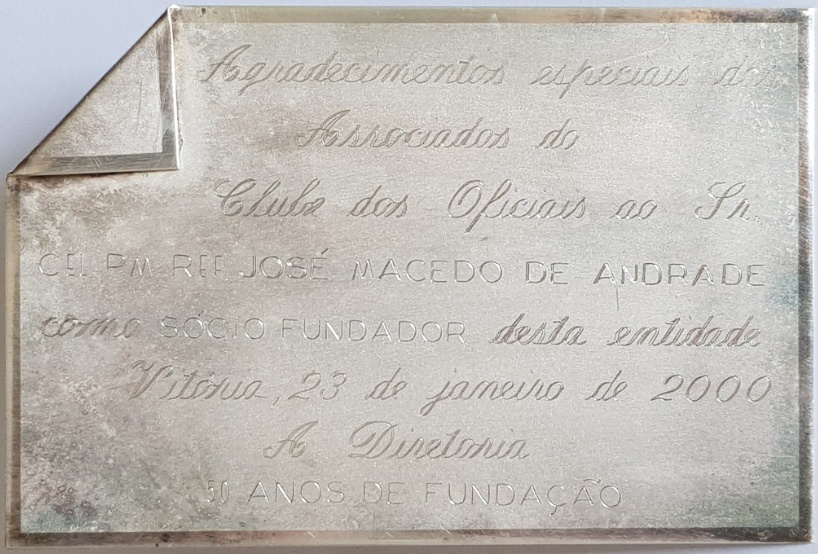 Agradecimentos especiais dos
Associados do
Clube dos Oficiais ao Sr.
CEL PM REF JOSÉ MACEDO DE ANDRADE
como SÓCIO FUNDADOR desta entidade
Vitória, 23 de janeiro de 2000
A Diretoria
50 ANOS DE FUNDAÇÃO